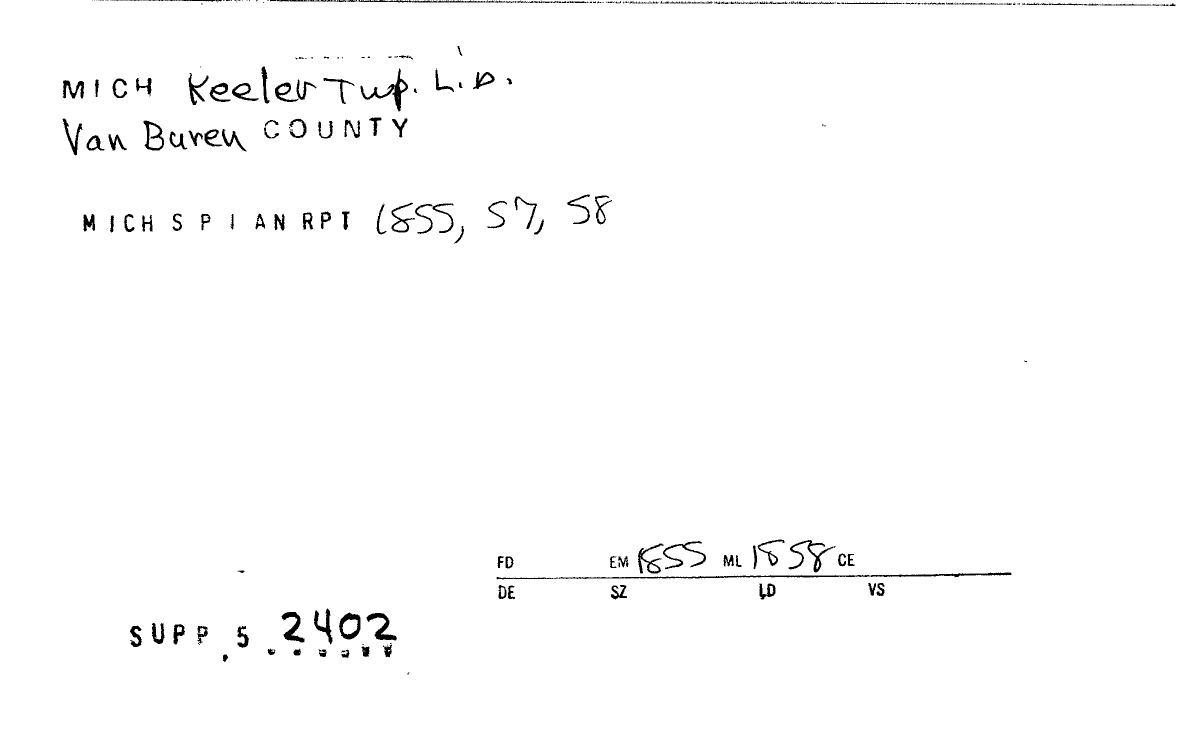 MICH Keeler Twp. L.D.
Van Buren COUNTY
MICH S P I AN RPT 1855, 57, 58
FD EM 1855 ML 1858 CE
DE SZ LD VS
SUPP. 5 2402